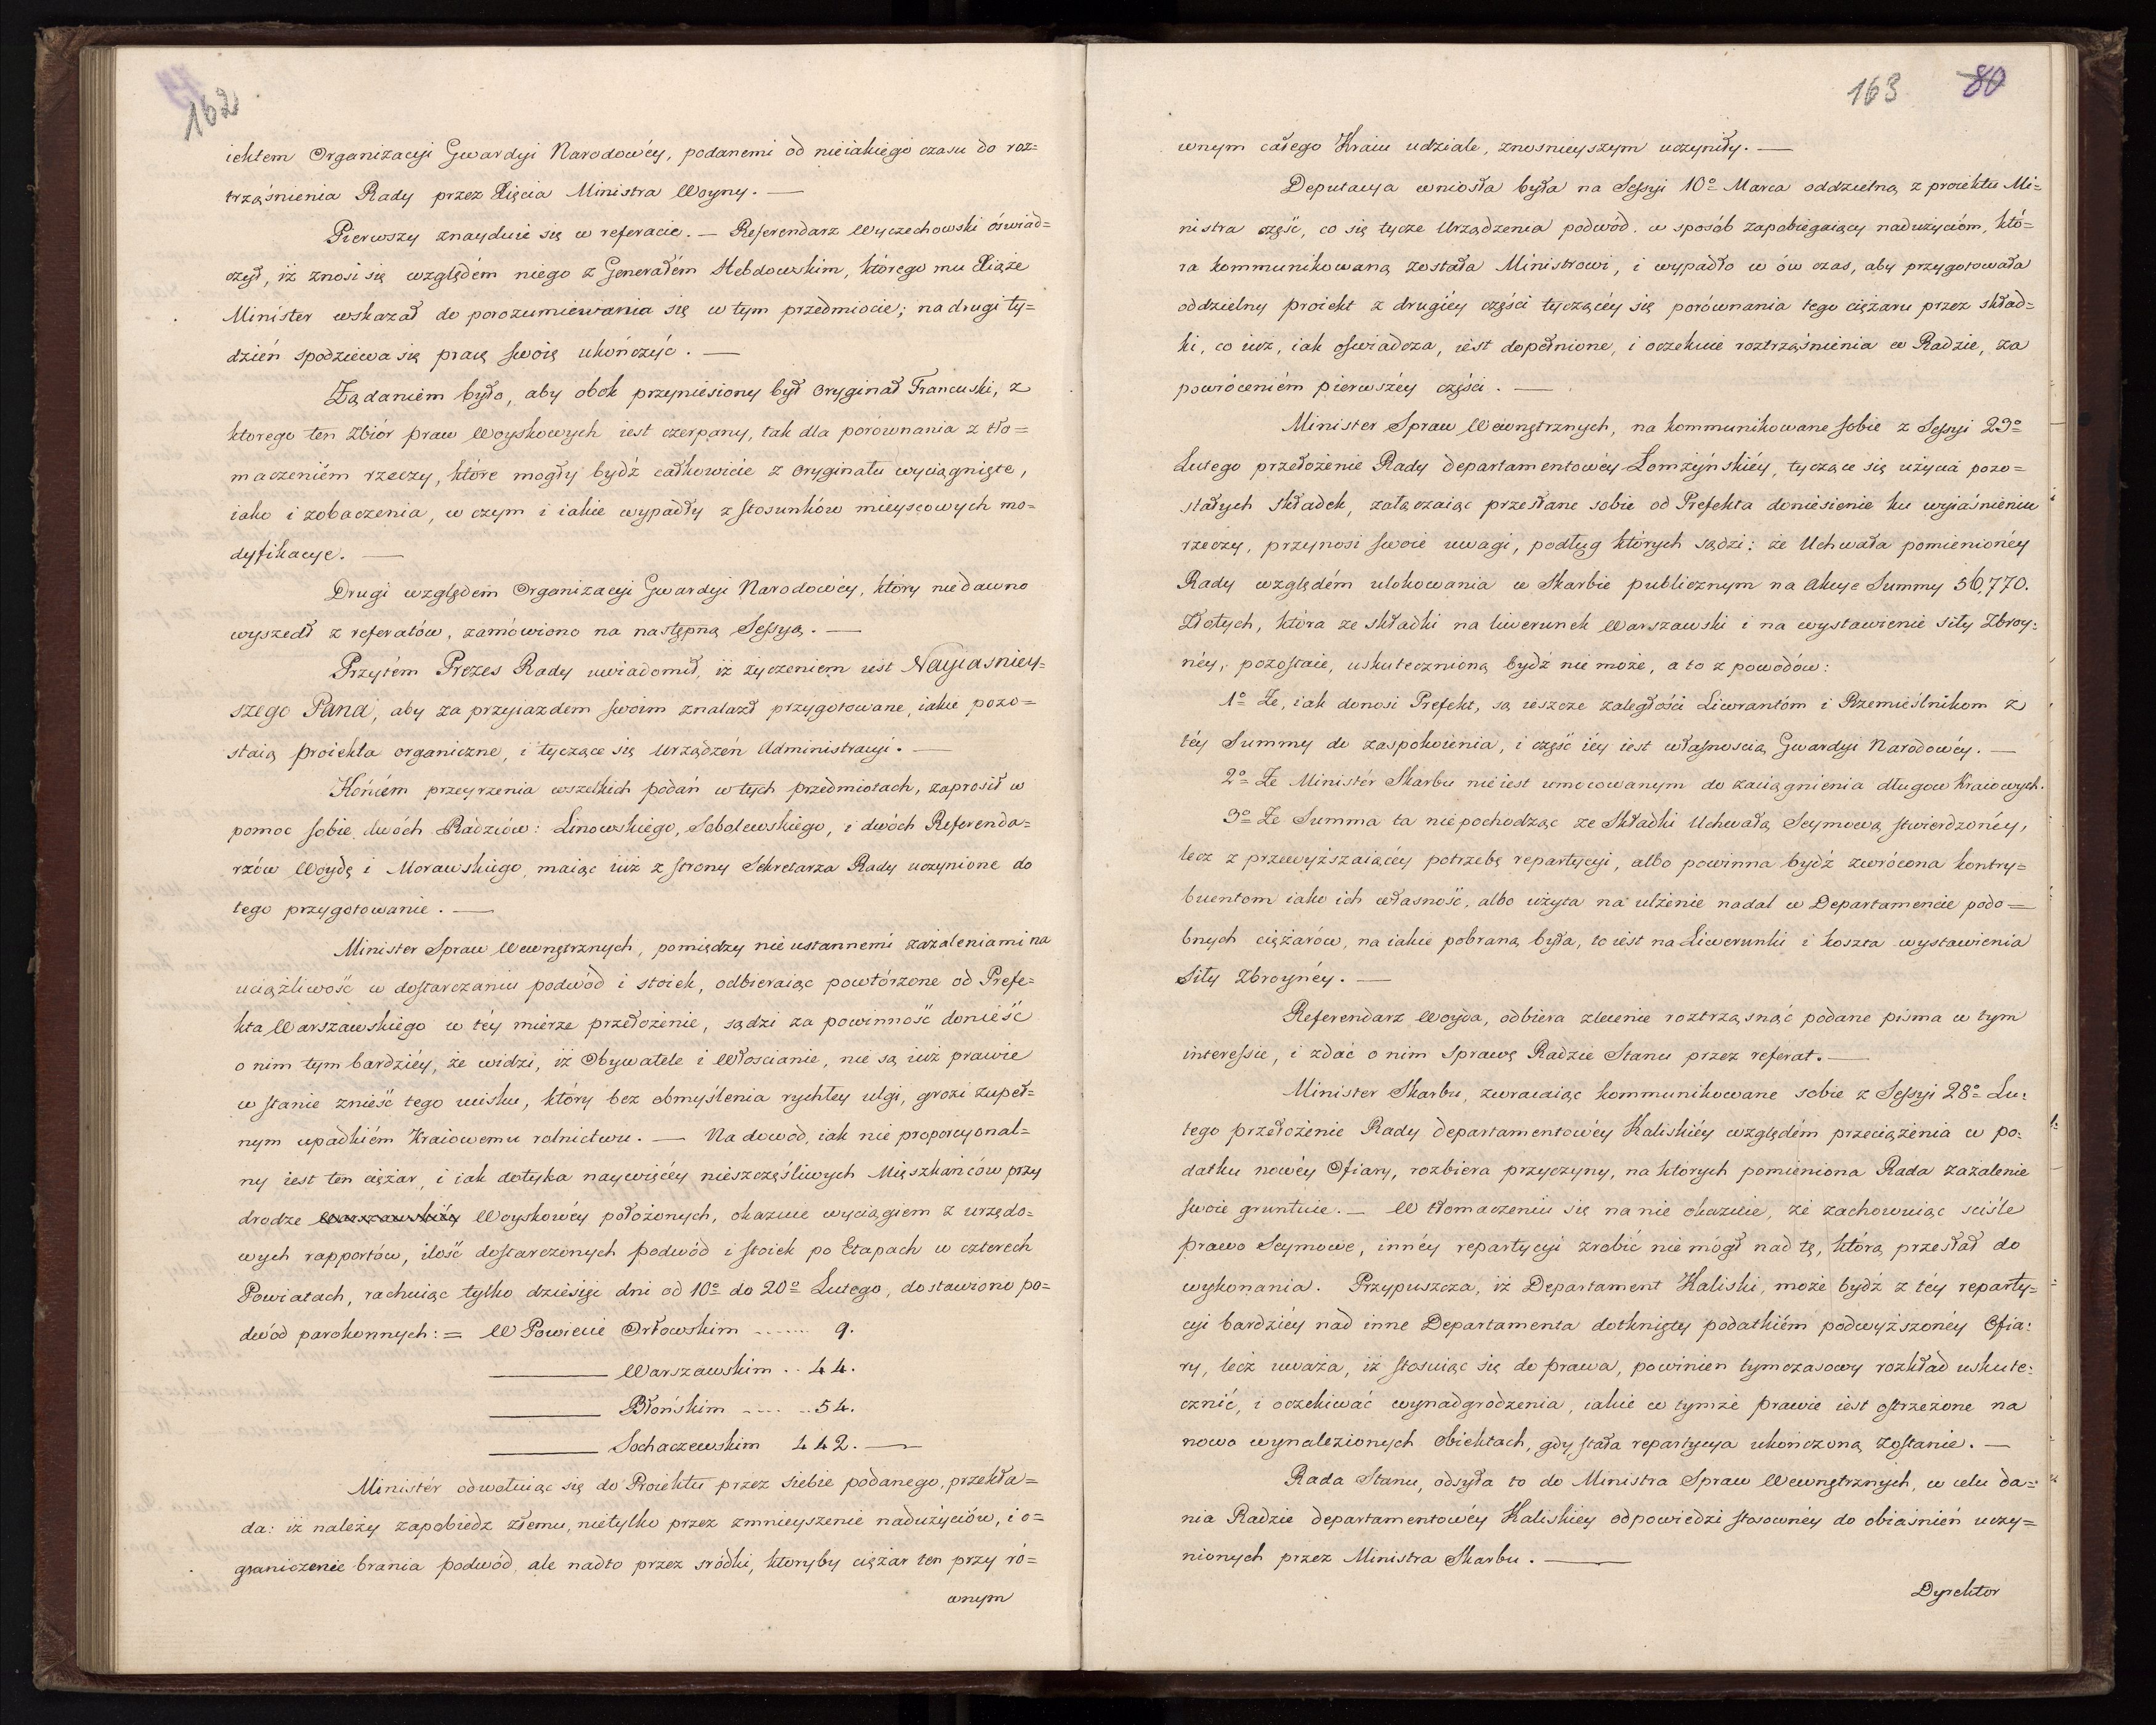 162
iektem Organizacyi Gwardyi Narodowéy, podanemi od nieiakiego czasu do roz=
trząśnienia Rady przez Xięcia Ministra Woyny. —
Pierwszy znayduie się w referacie. — Referendarz Wyczechowski oświad=
czył, iż znosi się względém niego z Generałém Hebdowskim, którego mu Xiąże
Minister wskazał do porozumiewania się w tym przedmiocie; na drugi ty=
dzień spodziewa się pracę swoię ukończyć. —
Żądaniem było, aby obok przyniesiony był oryginał Francuski, z
ktorego ten Zbiór praw Woyskowych iest czerpany, tak dla porównania z tło=
maczeniém rzeczy, które mogły bydź całkowicie z oryginału wyciągnięte,
iako i zobaczenia, w czym i iakie wypadły z stosunków mieyscowych mo=
dyfikacye. —
Drugi względem Organizacyi Gwardyi Narodowéy, który niedawno
wyszedł z referatów, zamówiono na następną Sessyą. —
Przytém Prezes Rady uwiadomił, iż życzeniem iest Nayiasniey=
szego Pana, aby za przyiazdem swoim znalazł przygotowane, iakie pozo=
staią proiekta organiczne, i tyczące się Urządzeń Administracyi. —
Końcém przeyrzenia wszelkich podań w tych przedmiotach, zaprosił w
pomoc sobie dwóch Radziów: Linowskiego, Sobolewskiego, i dwóch Referenda=
rzów Woydę i Morawskiego, maiąc iuż z strony Sekretarza Rady uczynione do
tego przygotowanie. —
Minister Spraw Wewnętrznych, pomiędzy nieustannemi zażaleniami na
uciążliwość w dostarczaniu podwód i stoiek, odbieraiąc powtórzone od Prefe=
kta Warszawskiego w téy mierze przełożenie, sądzi za powinność donieść
o nim tym bardziéy, że widzi, iż Obywatele i Włoscianie, nie są iuż prawie
w stanie znieść tego ucisku, który bez obmyślenia rychłey ulgi, grozi zupeł=
nym upadkiém Kraiowemu rolnictwu. — Na dowód, iak nie proporcyonal=
ny iest ten ciężar, i iak dotyka naywięcéy nieszczęśliwych Mięszkańców przy
drodze Warszawskiéy Woyskowéy położonych, okazuie wyciągiem z urzędo=
wych rapportów, ilość dostarczonych podwód i stoiek po Etapach w czterech
Powiatach, rachuiąc tylko dziesięć dni od 10º do 20º Lutego, dostawiono po=
dwód parokonnych: = W Powiecie Orłowskim ....... 9.
——— Warszawskim .. 44.
——— Błońskim ..... 54.
——— Sochaczewskim 442. —
Ministér odwołuiąc się do Proiektu przez siebie podanego, przekła=
da: iż należy zapobiedz złemu, nietylko przez zmnieyszenie nadużyciów, i o=
graniczenie brania podwód, ale nadto przez sródki, któryby ciężar ten przy ró=
wnym
163 80
wnym całego Kraiu udziale, znosnieyszym uczyniły. —
Deputacya wniosła była na Sessyi 10º Marca oddzielną z proiektu Mi=
nistra część, co się tycze Urządzenia podwód w sposób zapobiegaiący nadużyciom, któ=
ra kommunikowaną została Ministrowi, i wypadło w ów czas, aby przygotowała
oddzielny proiekt z drugiéy części tyczącéy się porównania tego ciężaru przez skład=
ki, co iuż, iak oswiadcza, iest dopełnione, i oczekuie roztrząśnienia w Radzie, za
powróceniém pierwszéy części. —
Minister Spraw Wewnętrznych, na kommunikowane sobie z Sessyi 29º
Lutego przełożenie Rady departamentowéy Łomżyńskiéy, tyczące się użycia pozo=
stałych składek, załączaiąc przesłane sobie od Prefekta doniesienie ku wyiaśnieniu
rzeczy, przynosi swoie uwagi, podług których sądzi: że Uchwała pomienionéy
Rady względém ulokowania w Skarbie publicznym na Akcye Summy 56,770.
Złotych, która ze składki na liwerunek Warszawski i na wystawienie siły Zbroy=
néy, pozostaie, uskutecznioną bydź nie może, a to z powodów:
1º Że, iak donosi Prefekt, są ieszcze zaległości Liwrantóm i Rzemieślnikom z
téy Summy do zaspokoienia, i część iéy iest własnoscią Gwardyi Narodowéy. —
2º Że Ministér Skarbu nie iest umocowanym do zaciągnienia długow Kraiowych.
3º Że Summa ta nie pochodząc ze Składki Uchwałą Seymową stwierdzonéy,
lecz z przewyższaiącéy potrzebę repartycyi, albo powinna bydź zwrócona kontry=
buentom iako ich własność, albo użyta na ulżenie nadal w Departamencie podo=
bnych ciężarów, na iakie pobraną była, to iest na Liwerunki i koszta wystawienia
Siły Zbroynéy. —
Referendarz Woyda, odbiera zlecenie roztrząsnąć podane pisma w tym
interessie, i zdać o nim Sprawę Radzie Stanu przez referat. —
Minister Skarbu, zwracaiąc kommunikowane sobie z Sessyi 28º Lu=
tego przełożenie Rady departamentowéy Kaliskiéy względém przeciążenia w po=
datku nowéy Ofiary, rozbiera przyczyny, na których pomieniona Rada zażalenie
swoie gruntuie. — W tłomaczeniu się na nie okazuie, że zachowuiąc sciśle
prawo Seymowe, innéy repartycyi zrobić nie mógł nad tę, którą przesłał do
wykonania. Przypuszcza, iż Departament Kaliski, może bydź z téy reparty=
cyi bardziéy nad inne Departamenta dotknięty podatkiém podwyższonéy Ofia=
ry, lecz uważa, iż stosuiąc się do prawa, powinien tymczasowy rozkład uskute=
cznić, i oczekiwać wynadgrodzenia, iakie w tymże prawie iest ostrzeżone na
nowo wynalezionych obiektach, gdy stała repartycya ukończoną zostanie. —
Rada Stanu, odsyła to do Ministra Spraw Wewnętrznych, w celu da=
nia Radzie departamentowéy Kaliskiéy odpowiedzi stosownéy do obiaśnień uczy=
nionych przez Ministra Skarbu. —
Dyrektor